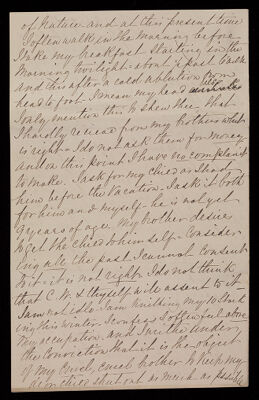 of Nature and at this present time
I often walk in the morning before
I take my breakfast starting in the
morning twilight about ½ past
and this after a cold ablution from
head to foot. I mean my head
I only mention this to shew thee that
I hardly receive from my Brothers what
is right. I do not ask them for money
and on this point I have no complaint
to make. I ask for my child as I have
him before the vacation. I ask it both
for him and myself he is not yet
9 years of age. My brother desires
to get the child to himself. Consider
ing all the past I cannot consent
to it it is not right. I do not think
that C W & thyself will assent to it
I am not idle. I am knitting my
ing this winter. I confess I often feel alone
my occupation and I write under
the conviction that it is the object
of my cruel, cruel brother to keep my
dear child shut out as much as possible